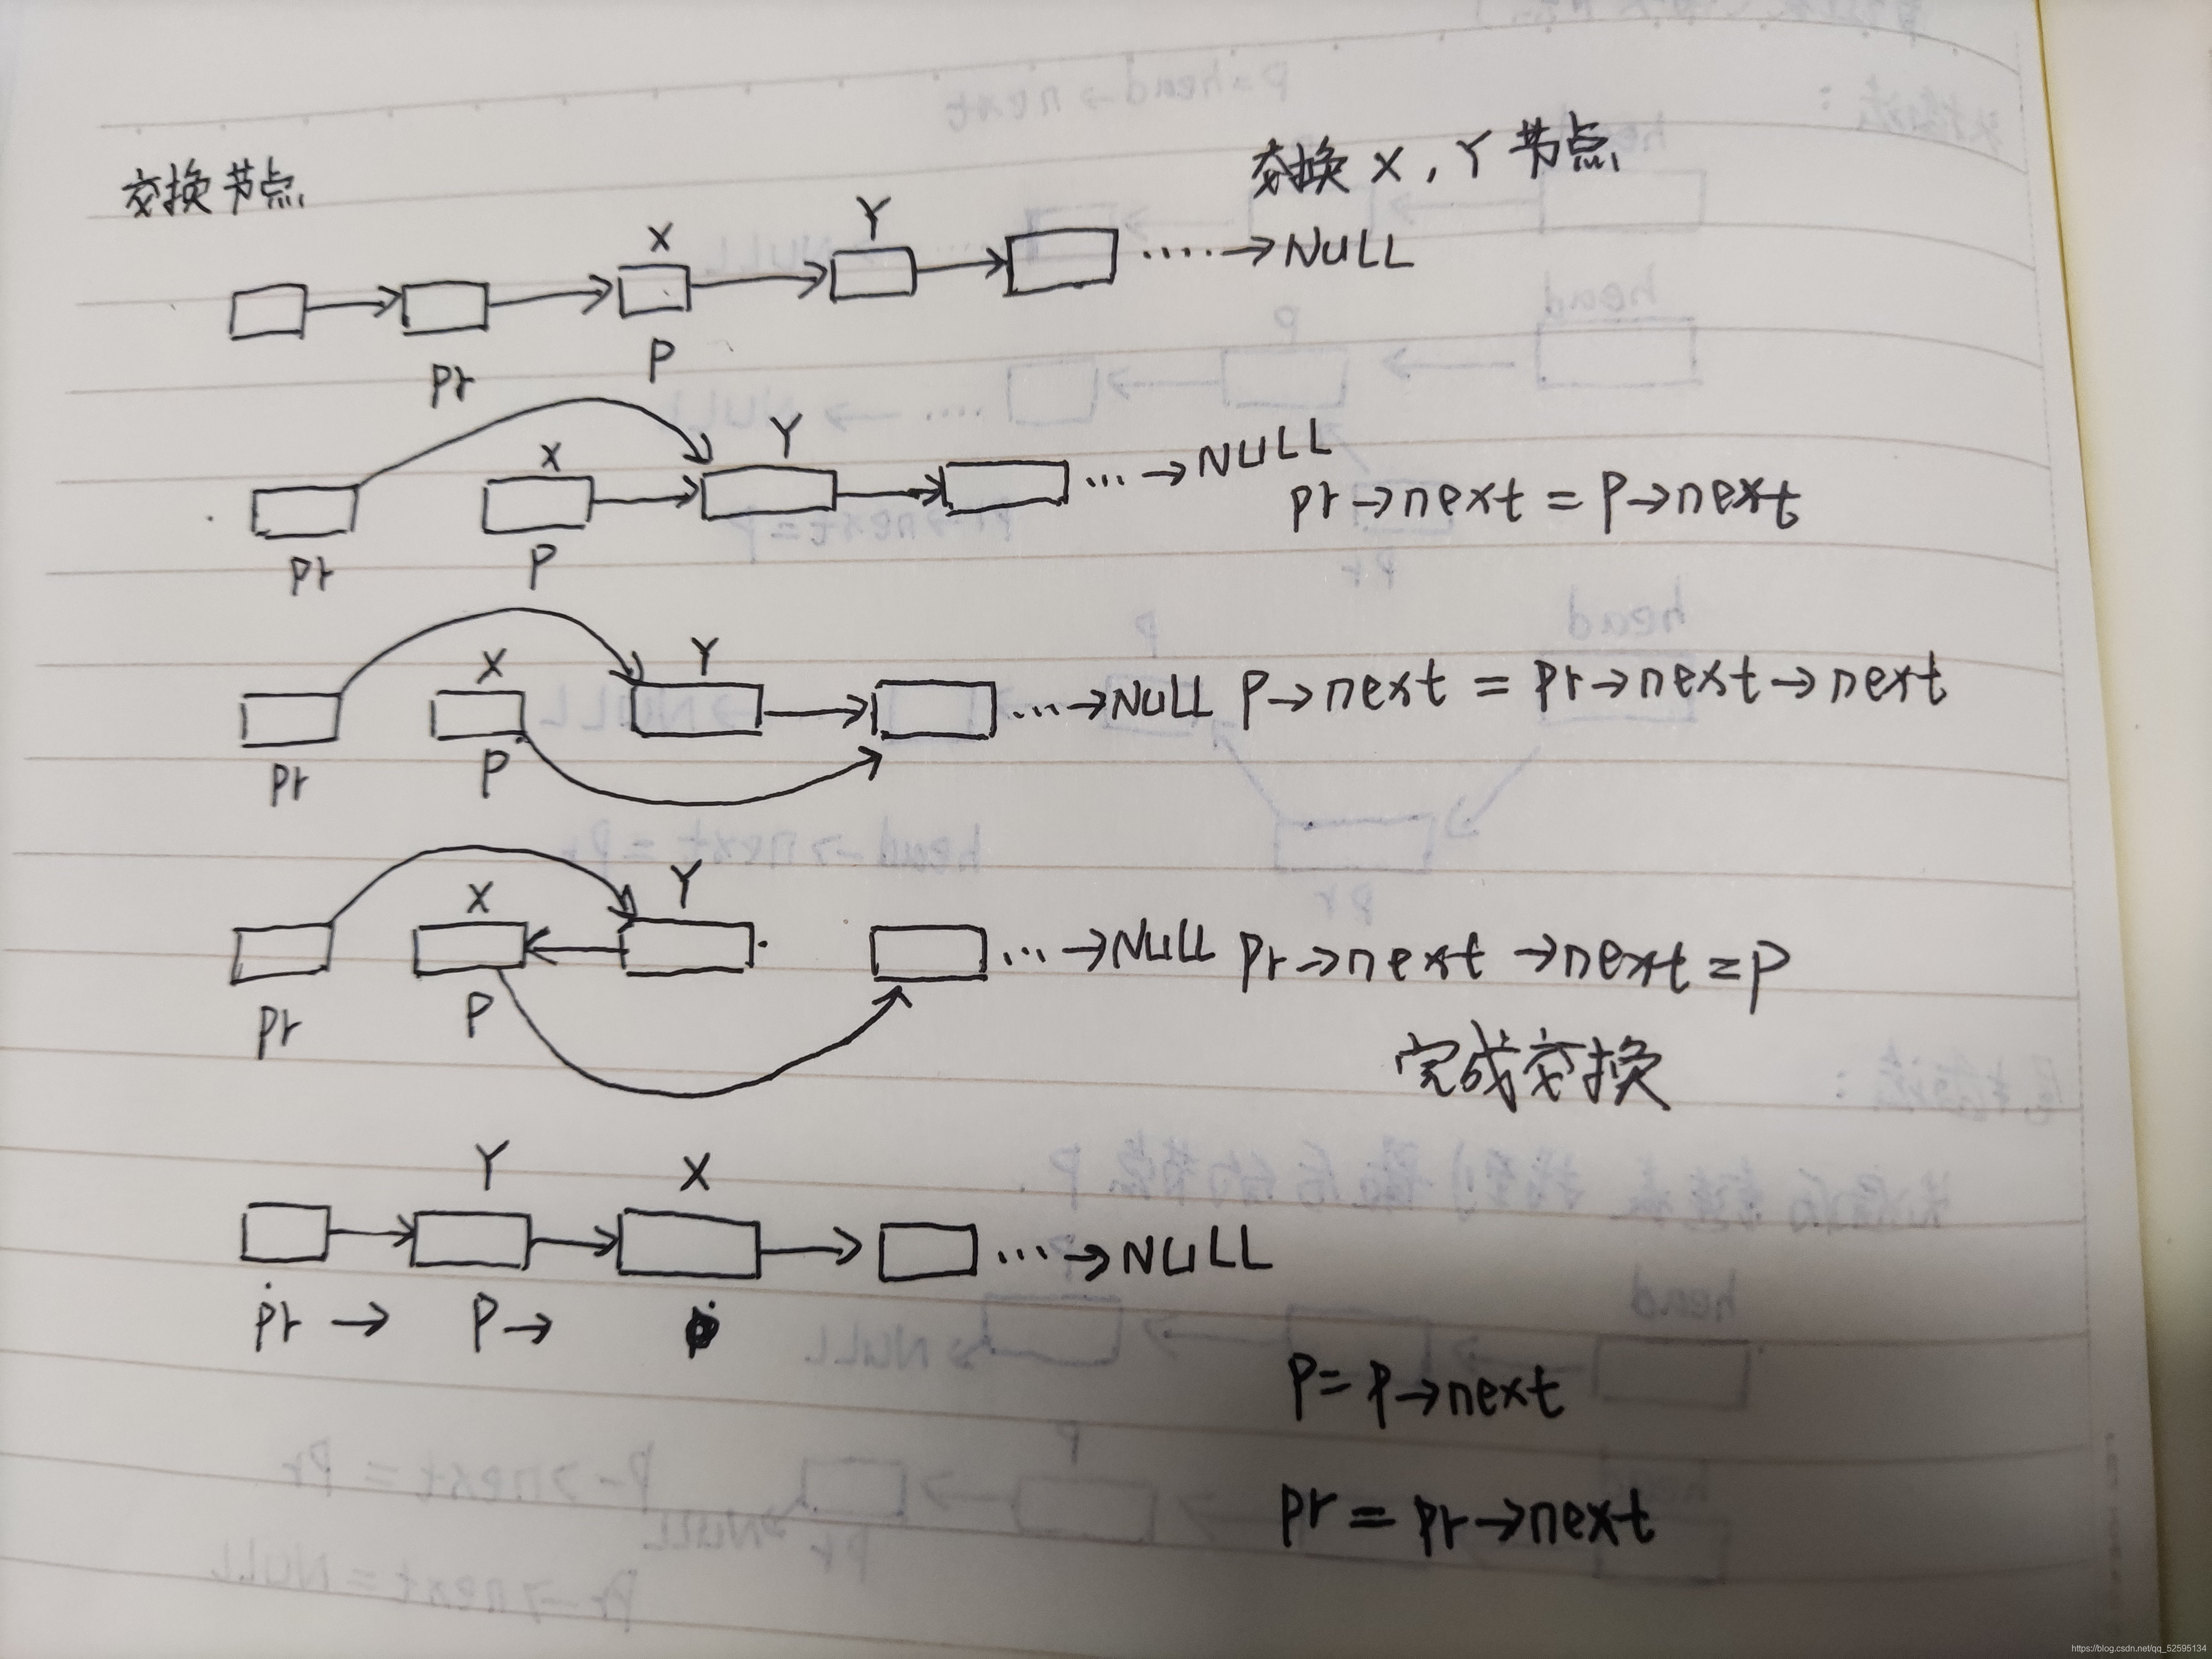 交换节点
交换 X, Y 节点
X
Y
→NULL
pr
P
X
Y
...→NULL
pr→next = P→next
pr
P
X
Y
...→NULL P→next = pr→next→next
pr
P
X
Y
...→NULL pr→next→next=P
pr
P
完成交换
Y
X
...→NULL
pr→ P→
P=P→next
pr = pr→next
https://blog.csdn.net/qq_52595134